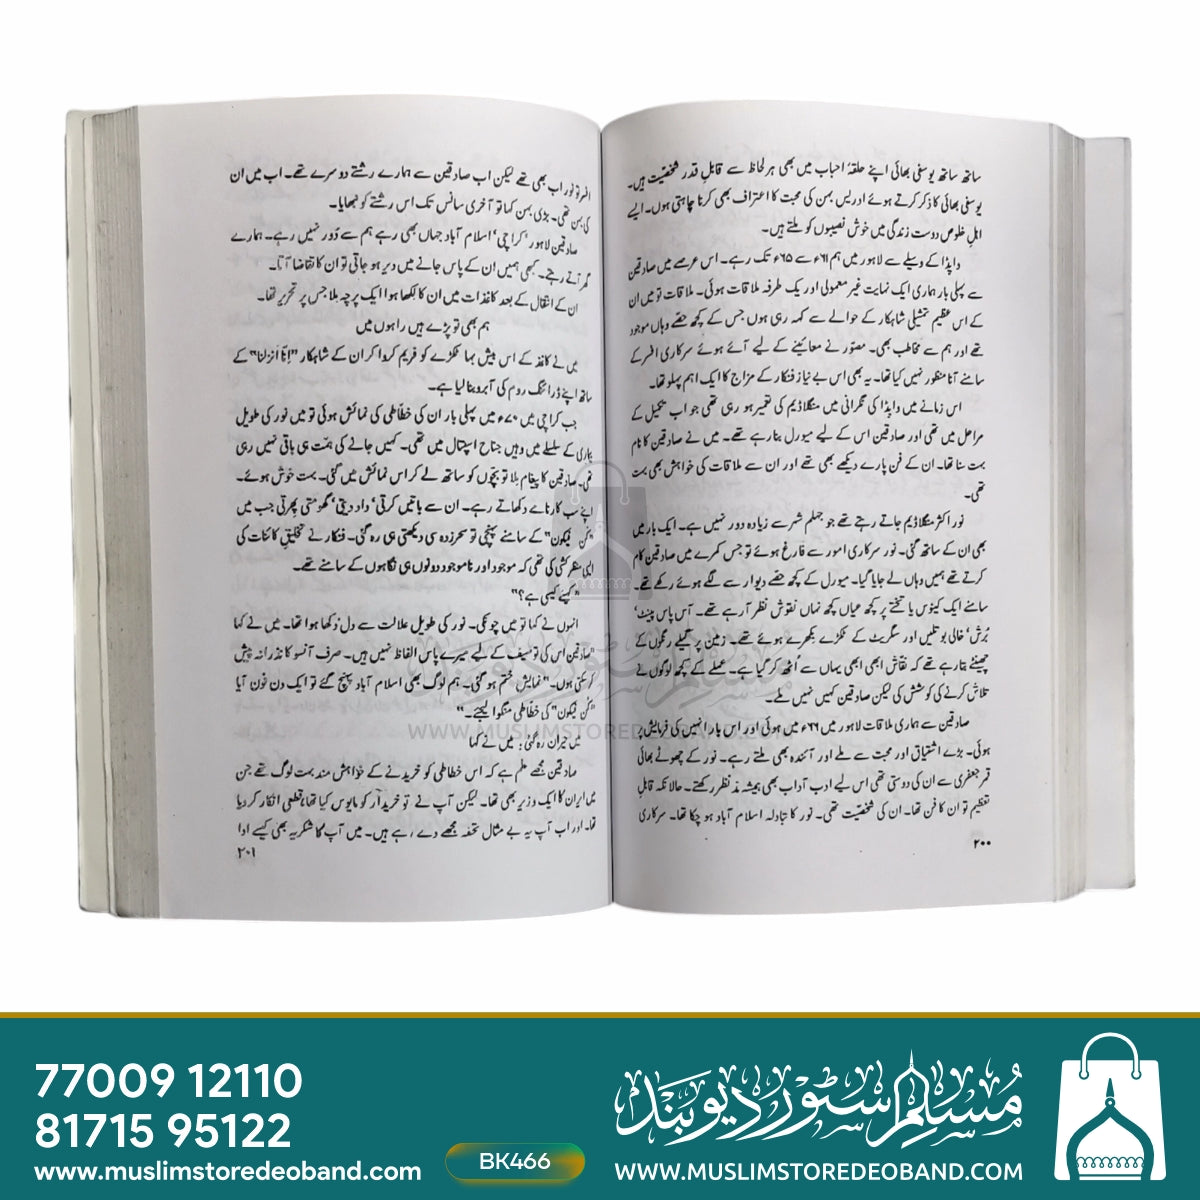 ساتھ ساتھ یوسفی بھائی اپنے حلقۂ احباب میں بھی ہر لحاظ سے قابلِ قدر شخصیّت ہیں۔
یوسفی بھائی کا ذکر کرتے ہوئے ادریس بہن کی محبت کا اعتراف بھی کرنا چاہتی ہوں۔ ایسے
اہلِ خلوص دوست زندگی میں خوش نصیبوں کو ملتے ہیں۔
واپڈا کے وسیلے سے لاہور میں ہم ۶۱ء سے ۶۵ء تک رہے۔ اس عرصے میں صادقین
سے پہلی بار ہماری ایک نہایت غیر معمولی اور یک طرفہ ملاقات ہوئی۔ ملاقات تو میں ان
کے اس عظیم تمثیلی شاہکار کے حوالے سے کہہ رہی ہوں جس کے کچھ حصّے وہاں موجود
تھے اور ہم سے مخاطب بھی۔ مصوّر نے معائنے کے لیے آئے ہوئے سرکاری افسر کے
سامنے آنا منظور نہیں کیا تھا۔ یہ بھی اس بے نیاز فنکار کے مزاج کا ایک اہم پہلو تھا۔
اس زمانے میں واپڈا کی نگرانی میں منگلا ڈیم کی تعمیر ہو رہی تھی جو اب تکمیل کے
مراحل میں تھی اور صادقین اس کے لیے میورل بنا رہے تھے۔ میں نے صادقین کا نام
بہت سنا تھا۔ ان کے فن پارے دیکھے بھی تھے اور ان سے ملاقات کی خواہش بھی بہت
تھی۔
نور اکثر منگلا ڈیم جاتے رہتے تھے جو جہلم شہر سے زیادہ دور نہیں ہے۔ ایک بار میں
بھی ان کے ساتھ گئی۔ نور سرکاری امور سے فارغ ہوئے تو جس کمرے میں صادقین کام
کرتے تھے ہمیں وہاں لے جایا گیا۔ میورل کے کچھ حصّے دیوار سے لگے ہوئے رکھے تھے۔
سامنے ایک کینوس یا تختے پر کچھ عیاں کچھ نہاں نقوش نظر آ رہے تھے۔ آس پاس پینٹ'
بُرش' خالی بوتلیں اور سگریٹ کے ٹکڑے بکھرے ہوئے تھے۔ زمین پر گیلے رنگوں کے
چھینٹے بتا رہے تھے کہ نقّاش ابھی ابھی یہاں سے اُٹھ کر گیا ہے۔ عملے کے کچھ لوگوں نے
تلاش کرنے کی کوشش کی لیکن صادقین کہیں نہیں ملے۔
صادقین سے ہماری ملاقات لاہور میں ۶۶ء میں ہوئی اور اس بار انہیں کی فرمایش پر
ہوئی۔ بڑے اشتیاق اور محبت سے ملے اور آئندہ بھی ملتے رہے۔ نور کے چھوٹے بھائی
قمر جعفری سے ان کی دوستی تھی اس لیے ادب آداب بھی ہمیشہ مدّ نظر رکھتے۔ حالانکہ قابلِ
تعظیم تو ان کا فن تھا۔ ان کی شخصیّت تھی۔ نور کا تبادلہ اسلام آباد ہو چکا تھا۔ سرکاری
۲۰۰
افسر تو نور اب بھی تھے لیکن اب صادقین سے ہمارے رشتے دوسرے تھے۔ اب میں ان
کی بہن تھی۔ بڑی بہن کہا تو آخری سانس تک اس رشتے کو نبھایا۔
صادقین لاہور' کراچی' اسلام آباد جہاں بھی رہے ہم سے دُور نہیں رہے۔ ہمارے
گھر آتے رہتے۔ کبھی ہمیں اِن کے پاس جانے میں دیر ہو جاتی تو ان کا تقاضا آتا۔
ان کے انتقال کے بعد کاغذات میں ان کا لکھا ہوا ایک پرچہ ملا جس پر تحریر تھا۔
ہم بھی تو پڑے ہیں راہوں میں
میں نے کاغذ کے اس بیش بہا ٹکڑے کو فریم کروا کر ان کے شاہکار "اِنَّا اَنزلنٰا" کے
ساتھ اپنے ڈرائنگ روم کی آبرو بنا لیا ہے۔
جب کراچی میں ۷۰ء میں پہلی بار ان کی خطّاطی کی نمائش ہوئی تو میں نور کی طویل
بیماری کے سلسلے میں وہیں جناح اسپتال میں تھی۔ کہیں جانے کی ہمّت ہی باقی نہیں رہی
تھی۔ صادقین کا پیغام ملا تو بچّوں کو ساتھ لے کر اس نمائش میں گئی۔ بہت خوش ہوئے۔
اپنے سب کارنامے دکھاتے رہے۔ ان سے باتیں کرتی' داد دیتی' گھومتی پھرتی جب میں
"کُن فیکون" کے سامنے پہنچی تو سحرزدہ سی دیکھتی ہی رہ گئی۔ فنکار نے تخلیقِ کائنات کی
ایسی منظر کشی کی تھی کہ موجود اور ناموجود دونوں ہی نگاہوں کے سامنے تھے۔
"کہیئے کیسی ہے؟"
انہوں نے کہا تو میں چونکی۔ نور کی طویل علالت سے دل دُکھا ہوا تھا۔ میں نے کہا
"صادقین اس کی توصیف کے لیے میرے پاس الفاظ نہیں ہیں۔ صرف آنسو کا نذرانہ پیش
کر سکتی ہوں۔" نمایش ختم ہو گئی۔ ہم لوگ بھی اسلام آباد پہنچ گئے تو ایک دن فون آیا
"کُن فیکون" کی خطّاطی منگوا لیجئے۔"
میں حیران رہ گئی؛ میں نے کہا
صادقین مجھے علم ہے کہ اس خطاطی کو خریدنے کے خواہش مند بہت لوگ تھے جن
میں ایران کا ایک وزیر بھی تھا۔ لیکن آپ نے تو خریدار کو مایوس کیا تھا، قطعی انکار کر دیا
تھا۔ اور اب آپ یہ بے مثال تحفہ مجھے دے رہے ہیں۔ میں آپ کا شکریہ بھی کیسے ادا
۲۰۱
WWW.MUSLIMSTOREDEOBAND.COM
77009 12110
81715 95122
www.muslimstoredeoband.com
BK466
مسلم سٹور دیوبند
WWW.MUSLIMSTOREDEOBAND.COM